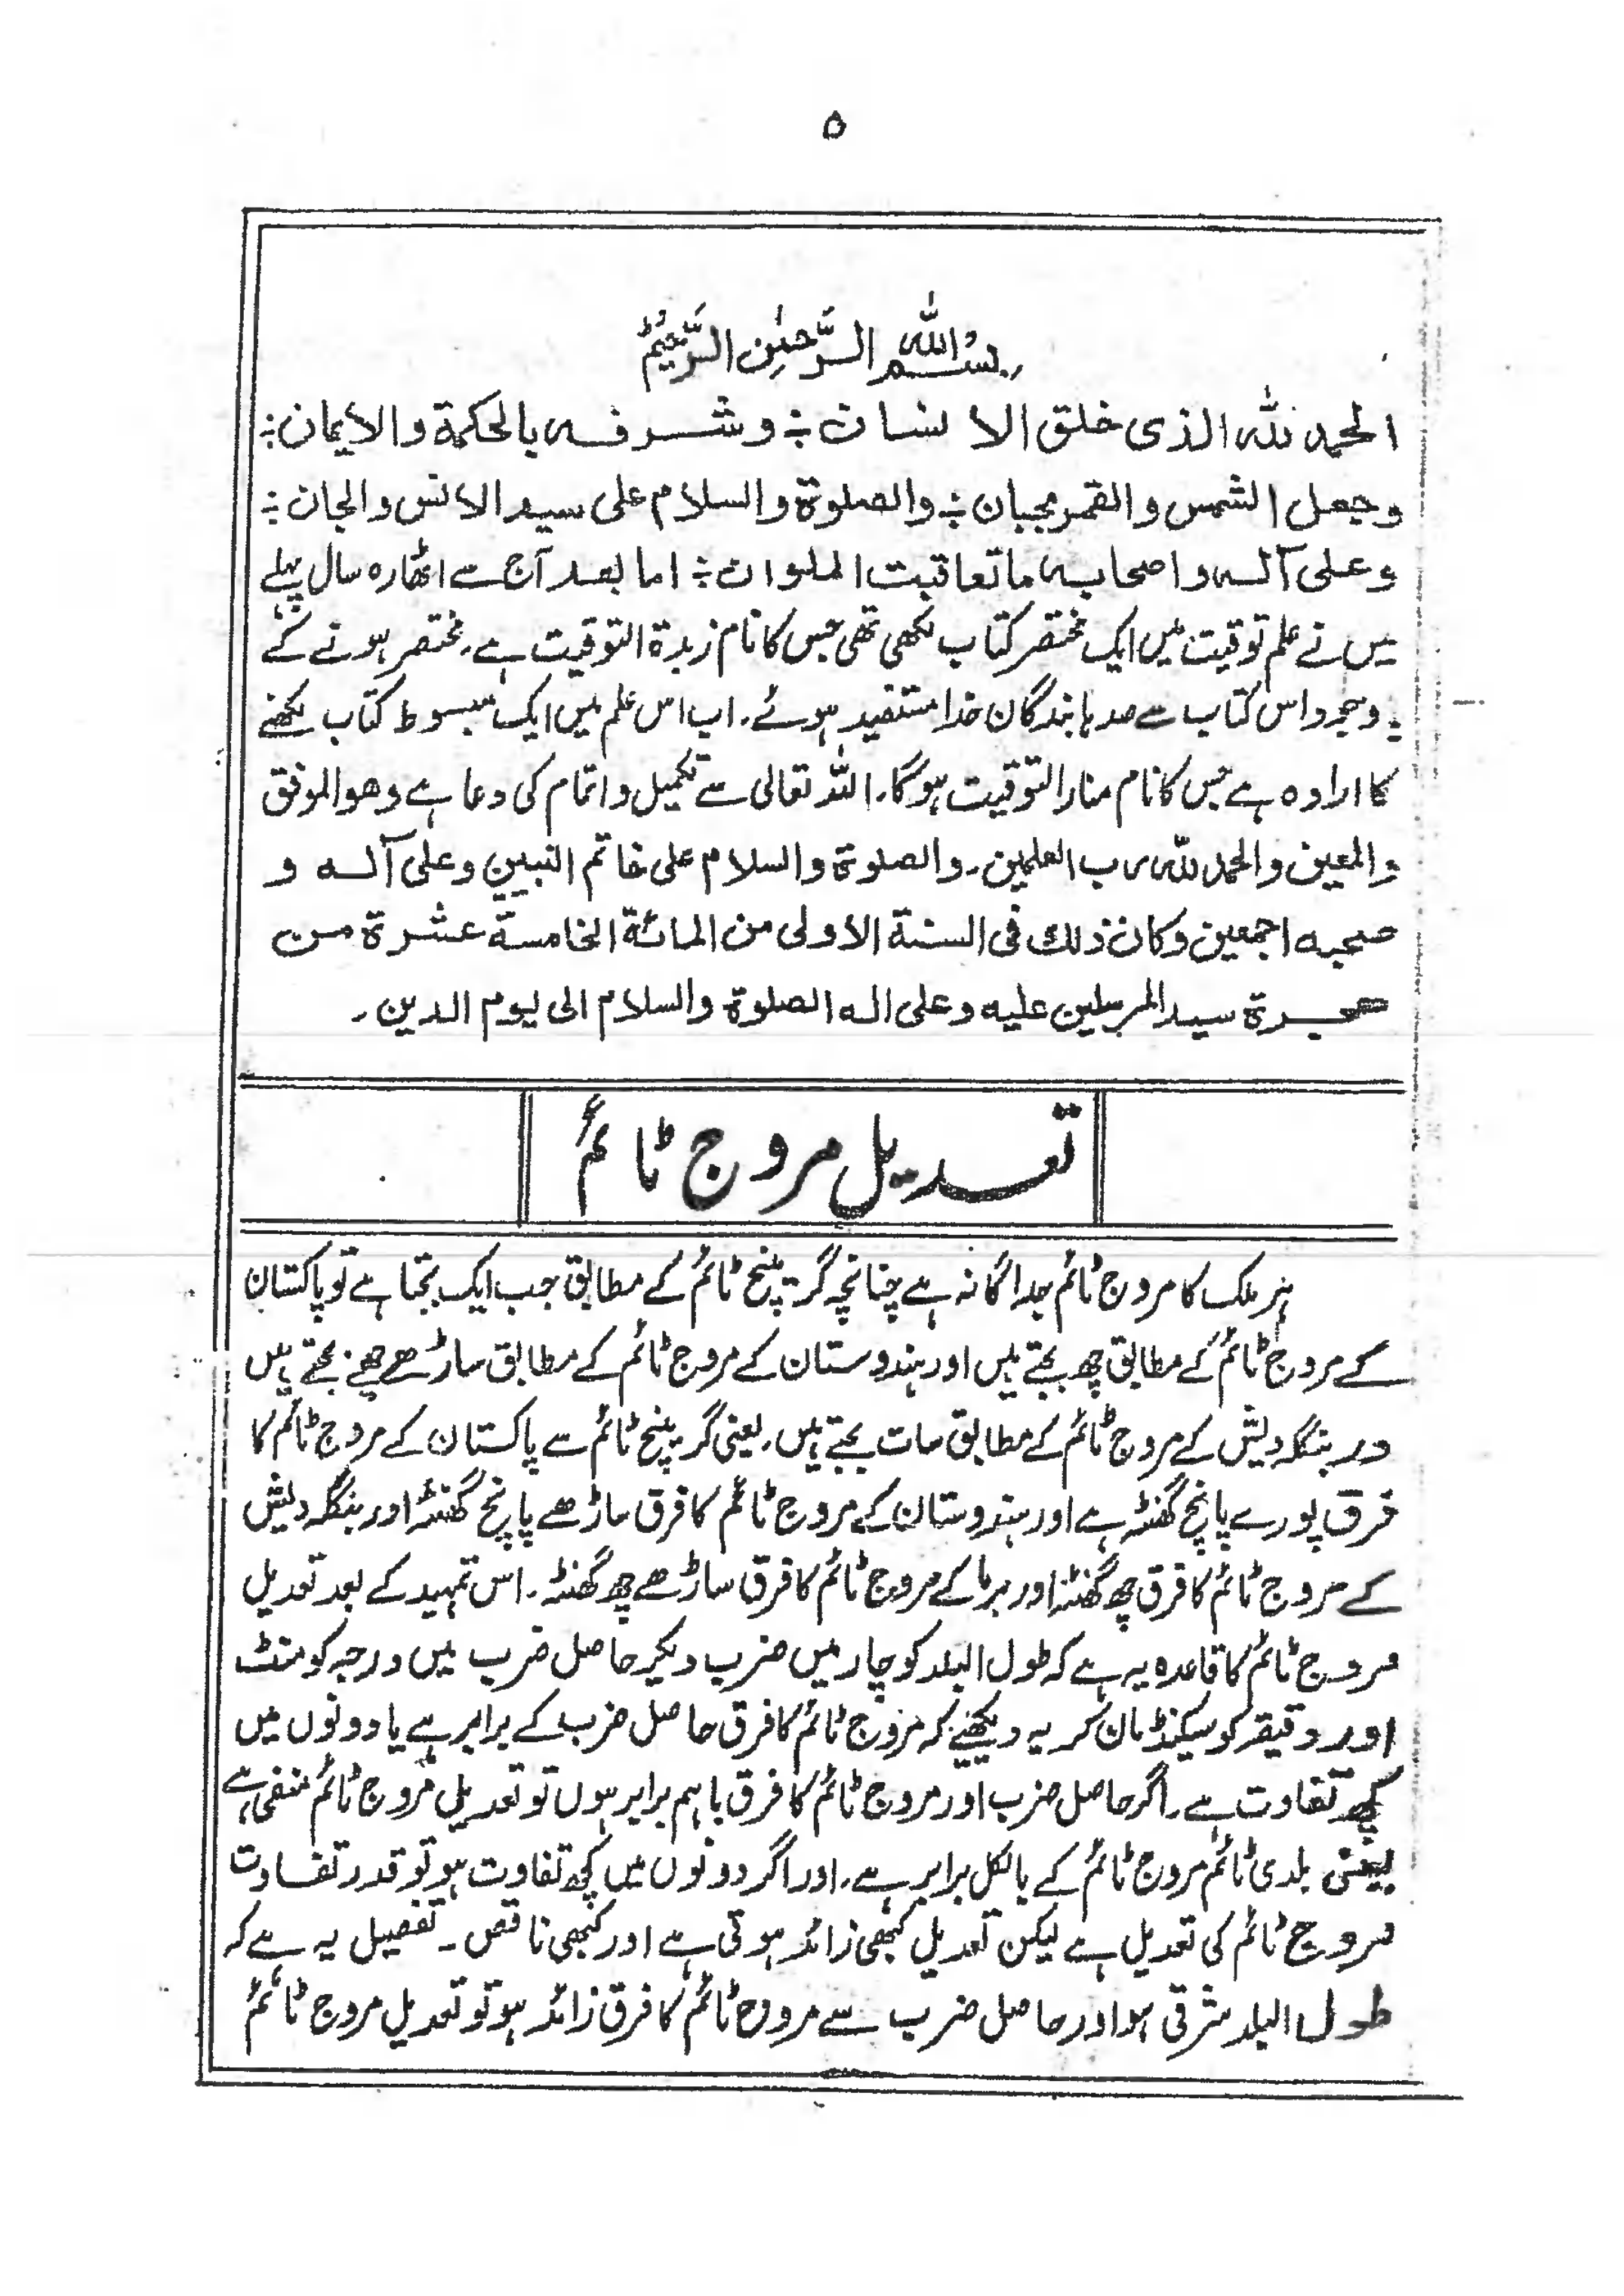 ۵
بِسْمِ اللّٰهِ الرَّحْمٰنِ الرَّحِيْمِ
الحمد للّٰه الذی خلق الانسان ÷ وشرفه بالحکمة والایمان ÷
وجعل الشمس والقمر بحسبان ÷ والصلوٰة والسلام علی سید الانس والجان ÷
وعلی آله واصحابه ما تعاقبت الملوان ÷ اما بعد آج سے اٹھارہ سال پہلے
میں نے علم توقیت میں ایک مختصر کتاب لکھی تھی جس کا نام زبدۃ التوقیت ہے۔ مختصر ہونے کے
وجود اس کتاب سے صدہا بندگان خدا مستفید ہوئے۔ اب اس علم میں ایک مبسوط کتاب لکھنے
کا ارادہ ہے جس کا نام منار التوقیت ہوگا۔ اللّٰہ تعالی سے تکمیل و اتمام کی دعا ہے وهو الموفق
والمعین والحمد للّٰه رب العلمین۔ والصلوٰة والسلام علی خاتم النبیین وعلی آله و
صحبه اجمعین وکان ذلك فی السنة الاولی من المائة الخامسة عشرة من
هجرة سید المرسلین علیه وعلی اله الصلوٰة والسلام الی یوم الدین۔
تعدیل مروج ٹائم
ہر ملک کا مروج ٹائم جداگانہ ہے چنانچہ گرینچ ٹائم کے مطابق جب ایک بجتا ہے تو پاکستان
کے مروج ٹائم کے مطابق چھ بجتے ہیں اور ہندوستان کے مروج ٹائم کے مطابق ساڑھے چھ بجتے ہیں
ور بنگلہ دیش کے مروج ٹائم کے مطابق سات بجتے ہیں۔ یعنی گرینچ ٹائم سے پاکستان کے مروج ٹائم کا
فرق پورے پانچ گھنٹہ ہے اور ہندوستان کے مروج ٹائم کا فرق ساڑھے پانچ گھنٹہ اور بنگلہ دیش
کے مروج ٹائم کا فرق چھ گھنٹہ اور برما کے مروج ٹائم کا فرق ساڑھے چھ گھنٹہ۔ اس تمہید کے بعد تعدیل
مروج ٹائم کا قاعدہ یہ ہے کہ طول البلد کو چار میں ضرب دیکر حاصل ضرب میں درجہ کو منٹ
اور دقیقہ کو سیکنڈ مان کر یہ دیکھئے کہ مروج ٹائم کا فرق حاصل ضرب کے برابر ہے یا دونوں میں
کچھ تفاوت ہے۔ اگر حاصل ضرب اور مروج ٹائم کا فرق باہم برابر ہوں تو تعدیل مروج ٹائم منفی ہے
یعنی بلدی ٹائم مروج ٹائم کے بالکل برابر ہے۔ اور اگر دونوں میں کچھ تفاوت ہو تو قدر تفاوت
مروج ٹائم کی تعدیل ہے لیکن تعدیل کبھی زائد ہوتی ہے اور کبھی ناقص۔ تفصیل یہ ہے کہ
طول البلد شرقی ہو اور حاصل ضرب سے مروج ٹائم کا فرق زائد ہو تو تعدیل مروج ٹائم